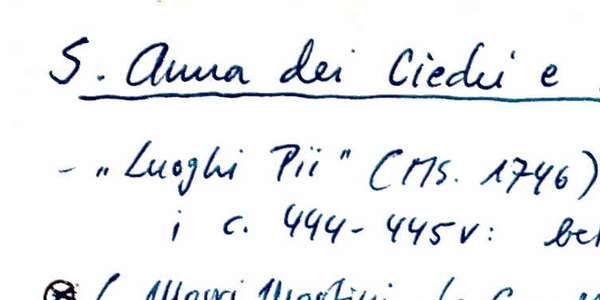 S. Anna dei Ciechi e
- "Luoghi Pii" (Ms. 1746)
i c. 444-445v: